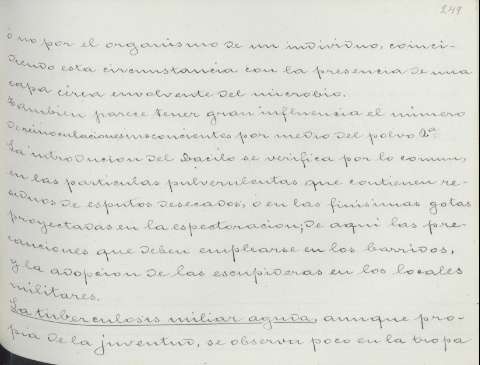 249
ó no por el organismo de un individuo, coinci-
diendo esta circunstancia con la presencia de una
capa cirea envolvente del microbio.
Tambien parece tener gran influencia el número
de reinoculaciones inconcientes por medio del polvo &ª.
La introducion del bacilo se verifica por lo comun,
en las particulas pulverulentas que contienen re-
siduos de esputos desecados, ó en las finisimas gotas
proyectadas en la espectoracion; de aqui las pre-
cauciones que deben emplearse en los barridos,
y la adopcion de las escupideras en los locales
militares.
La tuberculosis miliar aguda, aunque pro-
pia de la juventud, se observa poco en la tropa